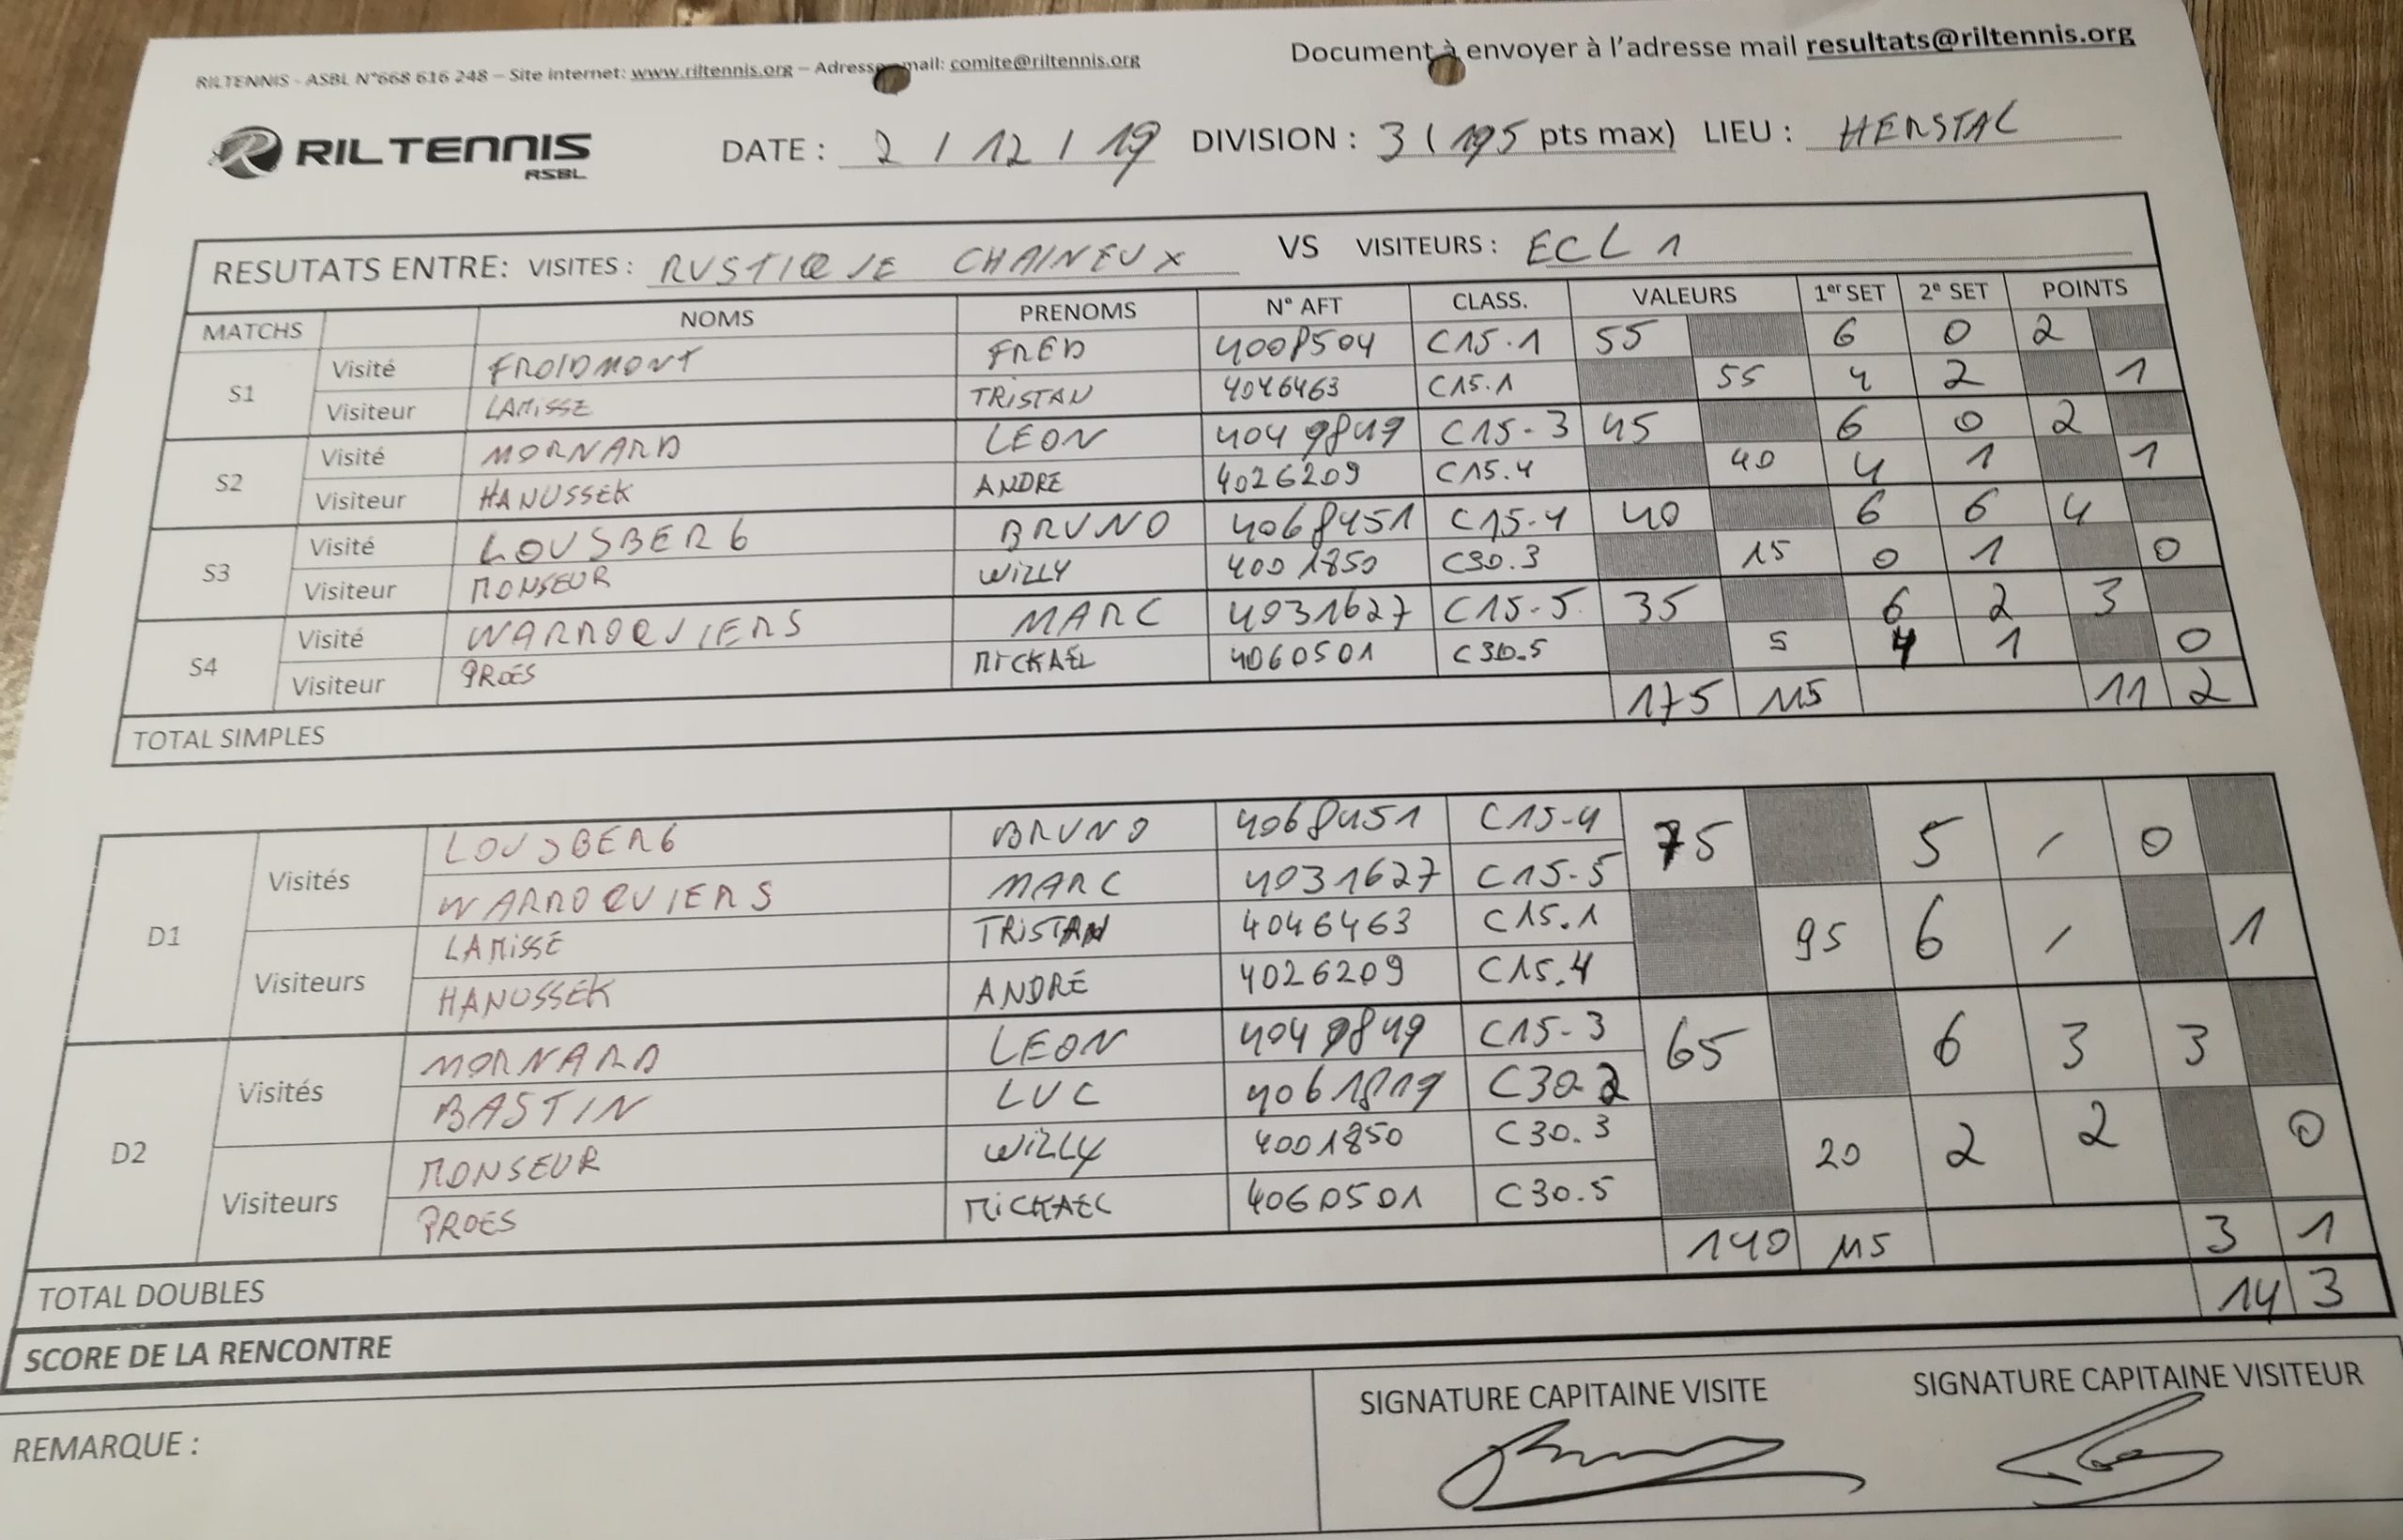 RILTENNIS - ASBL N°668 616 248 – Site internet: www.riltennis.org – Adresse mail: comite@riltennis.org
Document à envoyer à l'adresse mail resultats@riltennis.org
RILTENNIS ASBL DATE : 2 / 12 / 19 DIVISION : 3 ( 195 pts max) LIEU : HERSTAL
RESUTATS ENTRE: VISITES : RUSTIQUE CHAINEUX VS VISITEURS : ECL 1
MATCHS NOMS PRENOMS N° AFT CLASS. VALEURS 1er SET 2e SET POINTS
S1 Visité FROIDMONT FRED 4008504 C15.1 55 6 0 2
Visiteur LAMISSE TRISTAN 4046463 C15.1 55 4 2 1
S2 Visité MORNARD LEON 4049849 C15-3 45 6 0 2
Visiteur HANUSSEK ANDRE 4026209 C15.4 40 4 1 1
S3 Visité LOUSBERG BRUNO 4068451 C15-4 40 6 6 4
Visiteur MONSEUR WILLY 4001850 C30.3 15 0 1 0
S4 Visité WARROQUIERS MARC 4031627 C15-5 35 6 2 3
Visiteur PROES MICKAËL 4060501 C30.5 5 4 1 0
TOTAL SIMPLES 175 115 11 2
D1 Visités LOUSBERG BRUNO 4068451 C15-4 75 5 / 0
WARROQUIERS MARC 4031627 C15-5
Visiteurs LAMISSE TRISTAN 4046463 C15.1 95 6 / 1
HANUSSEK ANDRE 4026209 C15.4
D2 Visités MORNARD LEON 4049849 C15-3 65 6 3 3
BASTIN LUC 4061819 C30-2
Visiteurs MONSEUR WILLY 4001850 C30.3 20 2 2 0
PROES MICKAEL 4060501 C30.5
TOTAL DOUBLES 140 115 3 1
SCORE DE LA RENCONTRE 14 3
REMARQUE :
SIGNATURE CAPITAINE VISITE
SIGNATURE CAPITAINE VISITEUR